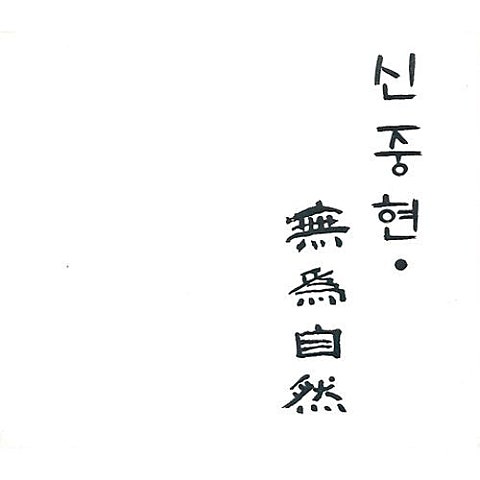 신중현·
無為自然